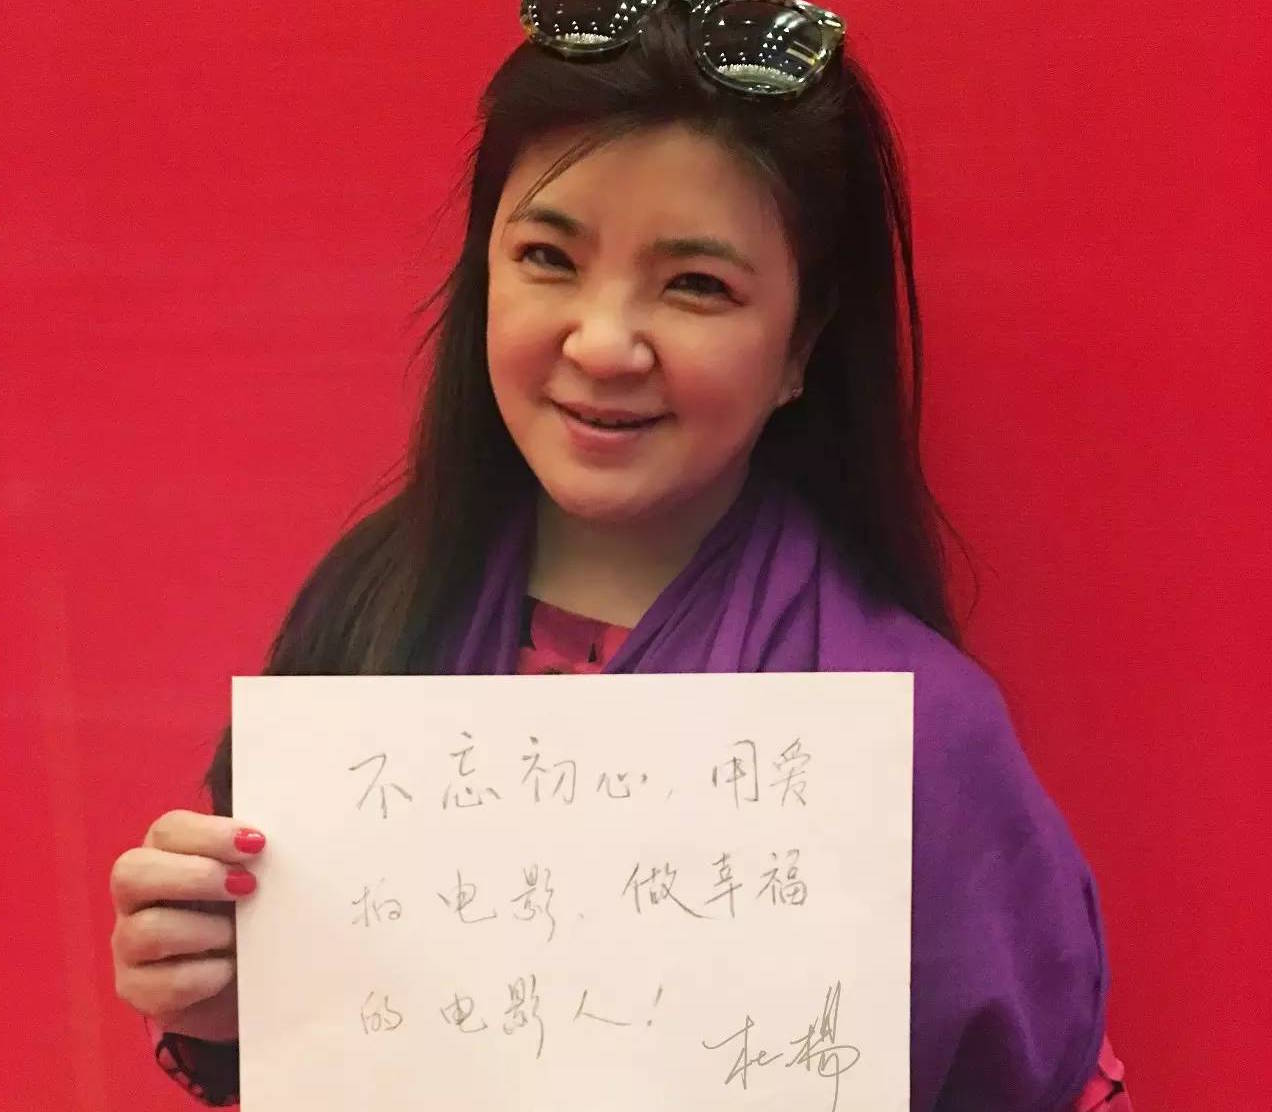 不忘初心，用爱
拍电影，做幸福
的电影人！
杜杨